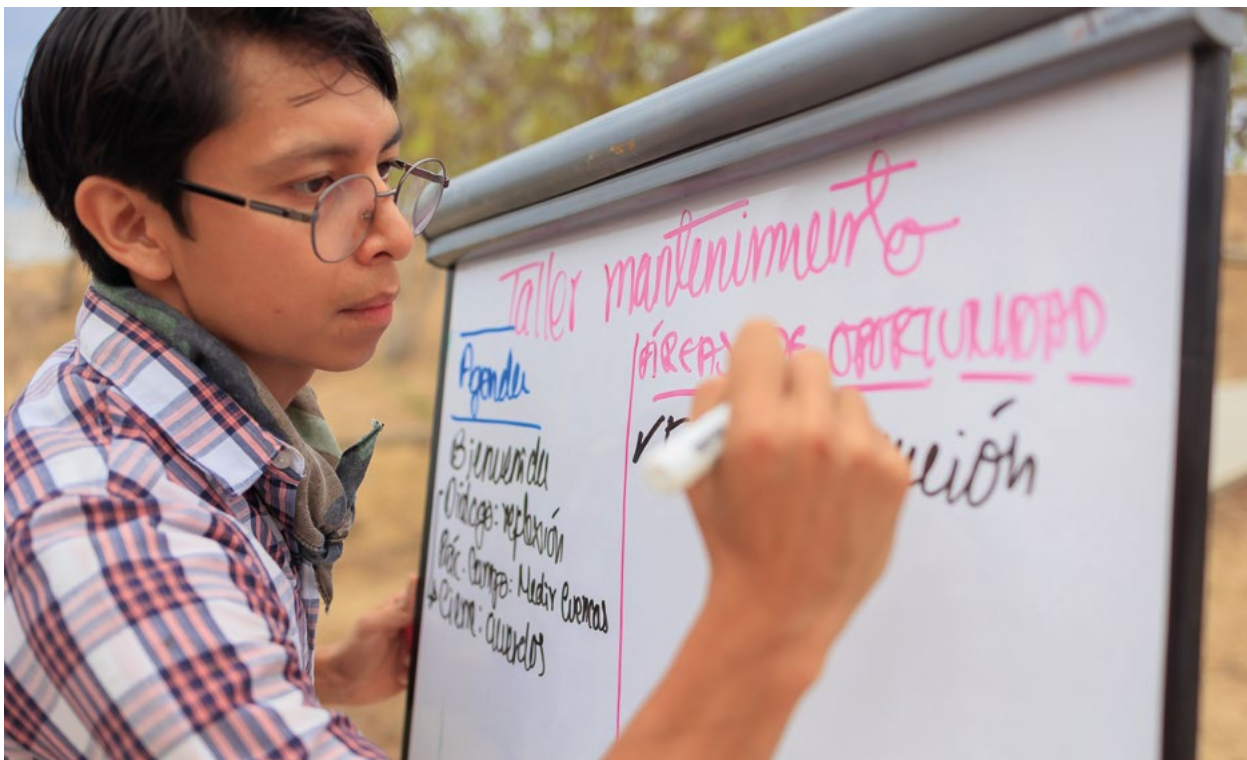 Taller mantenimiento
Agenda
Bienvenida
-Diálogo: reflexión
Medir Cuencas
Cierre: acuerdos
ÁREAS DE OPORTUNIDAD